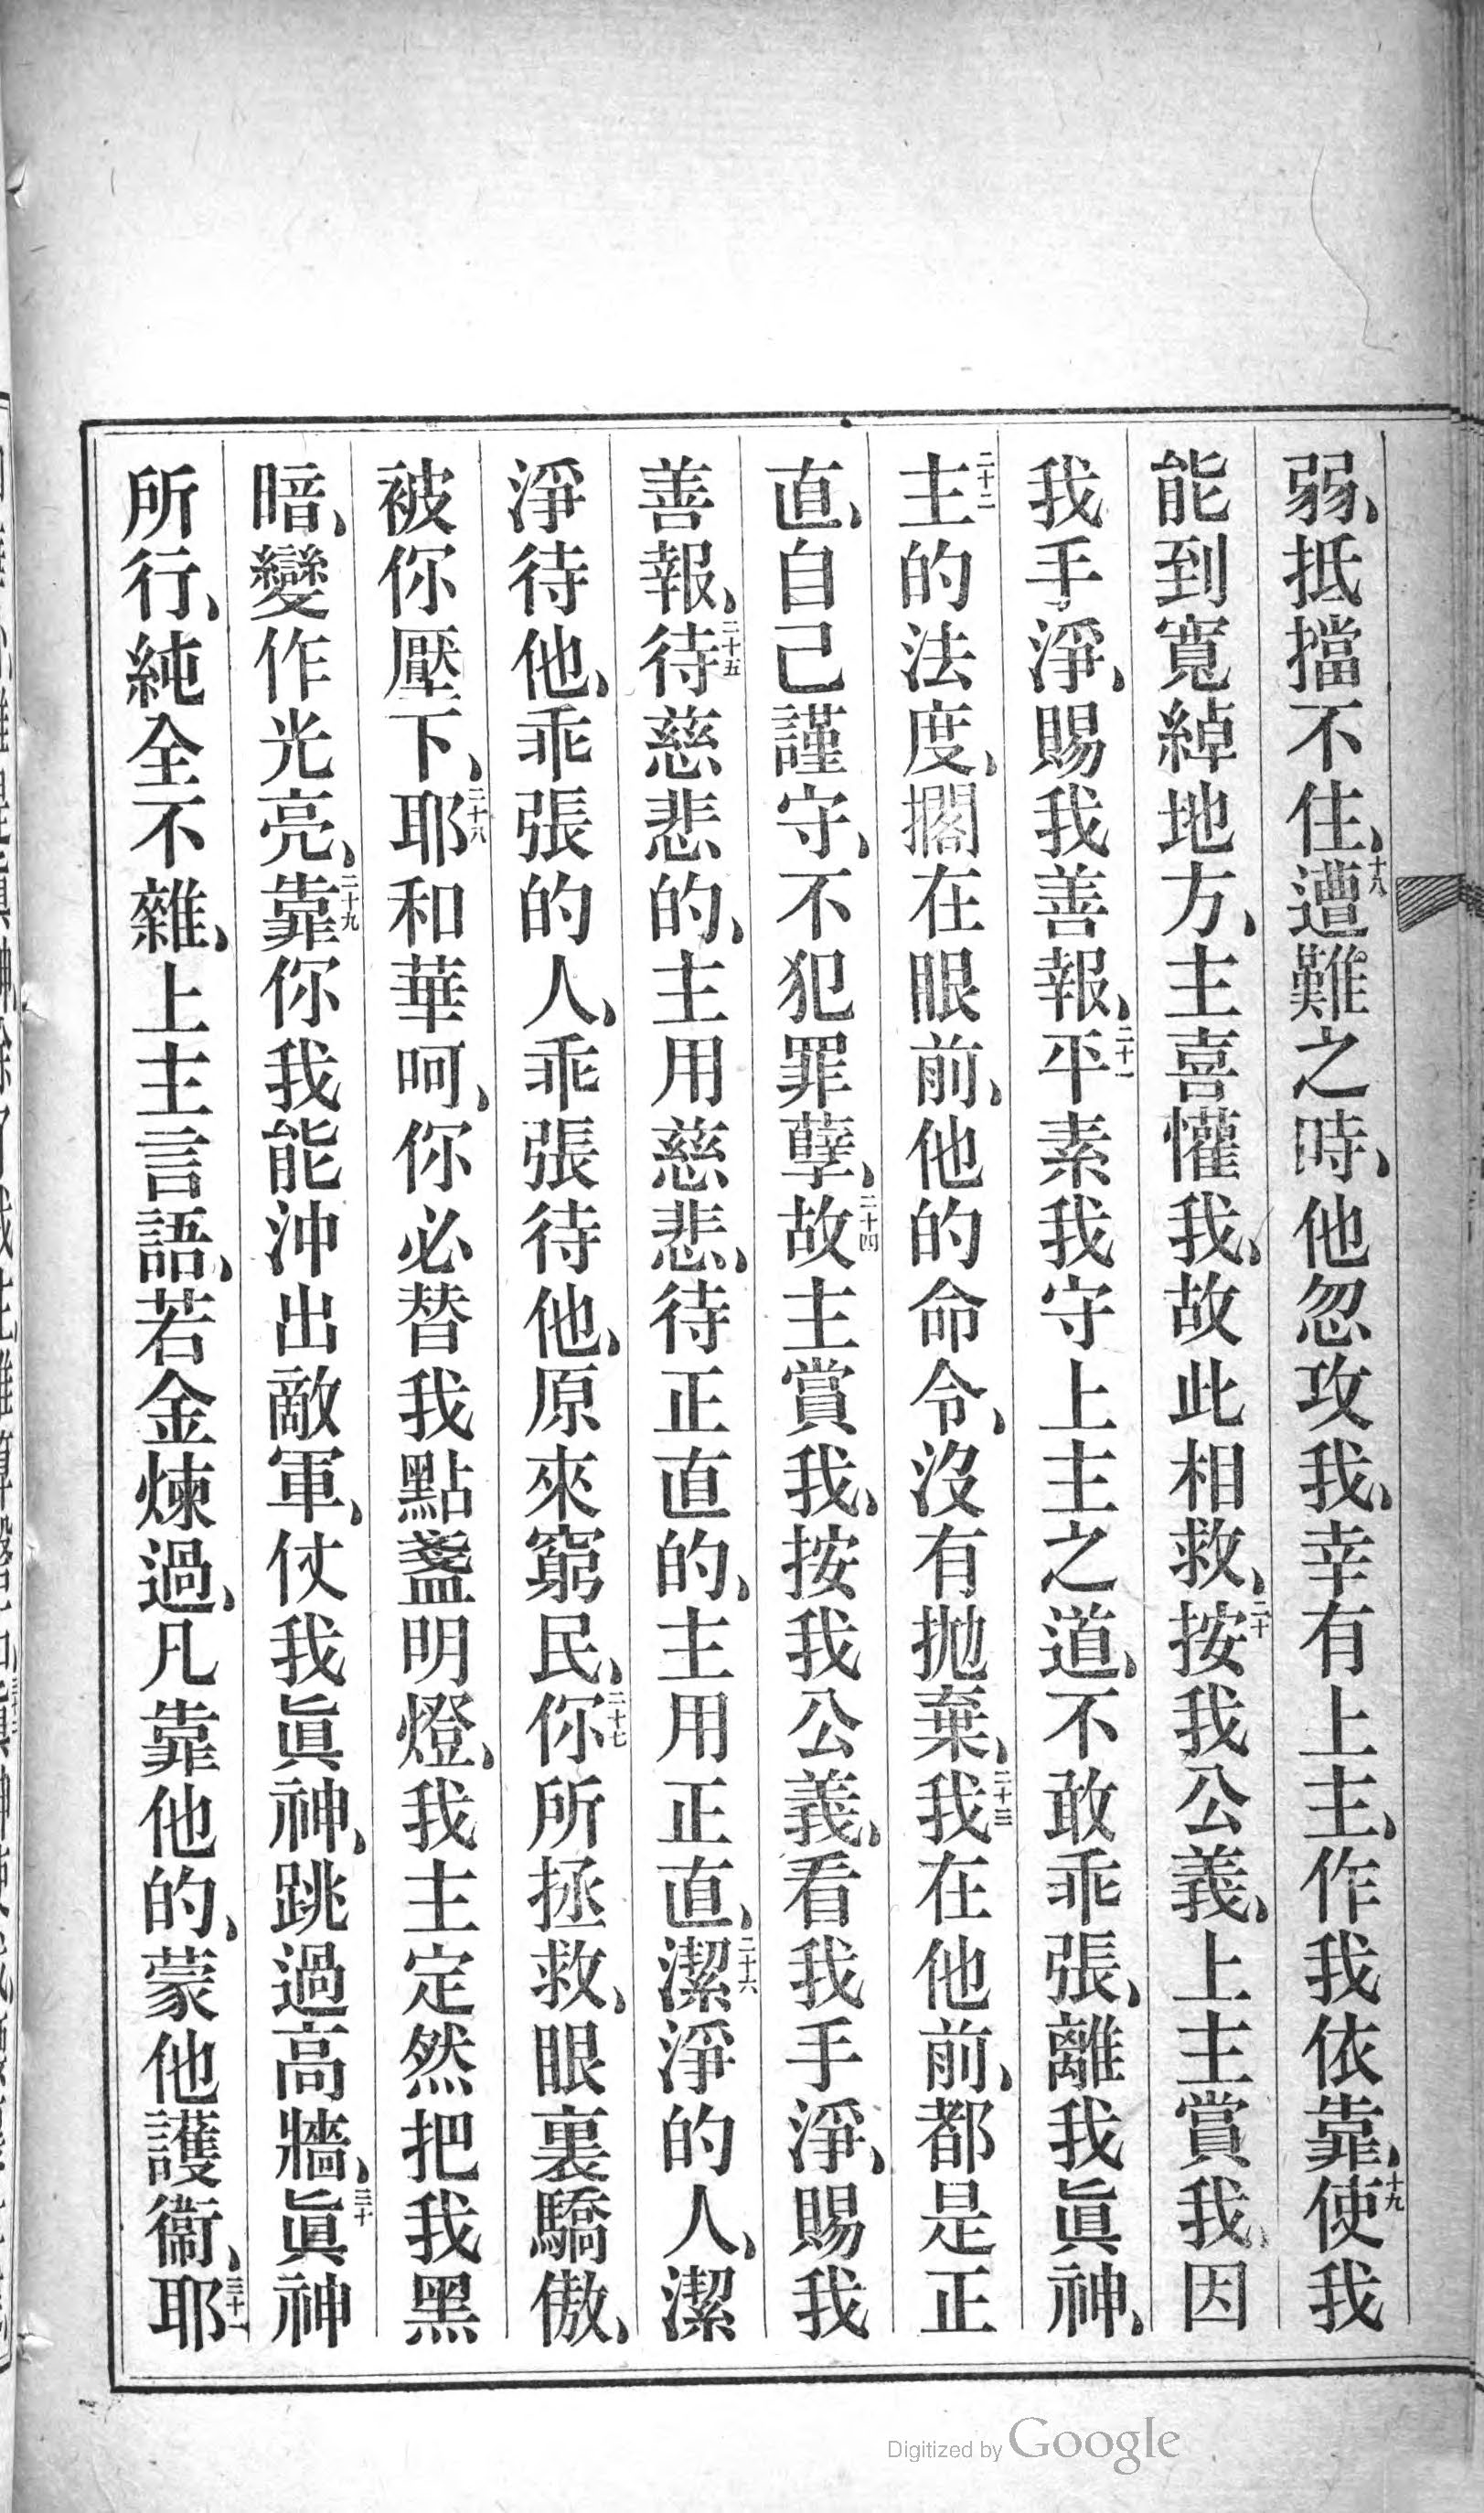 弱、抵擋不住、十八遭難之時、他忽攻我、幸有上主、作我依靠、十九使我
能到寬綽地方、主喜懽我、故此相救、二十按我公義、上主賞我、因
我手淨、賜我善報、二十一平素我守上主之道、不敢乖張、離我眞神、
二十二主的法度、擱在眼前、他的命令、沒有拋棄、二十三我在他前、都是正
直、自己謹守、不犯罪孽、二十四故主賞我、按我公義、看我手淨、賜我
善報、二十五待慈悲的、主用慈悲、待正直的、主用正直、二十六潔淨的人、潔
淨待他、乖張的人、乖張待他、原來窮民、二十七你所拯救、眼裏驕傲、
被你壓下、二十八耶和華呵、你必替我點盞明燈、我主定然把我黑
暗、變作光亮、二十九靠你我能沖出敵軍、仗我眞神、跳過高牆、三十眞神
所行、純全不雜、上主言語、若金煉過、凡靠他的、蒙他護衞、三十一耶
Digitized by Google